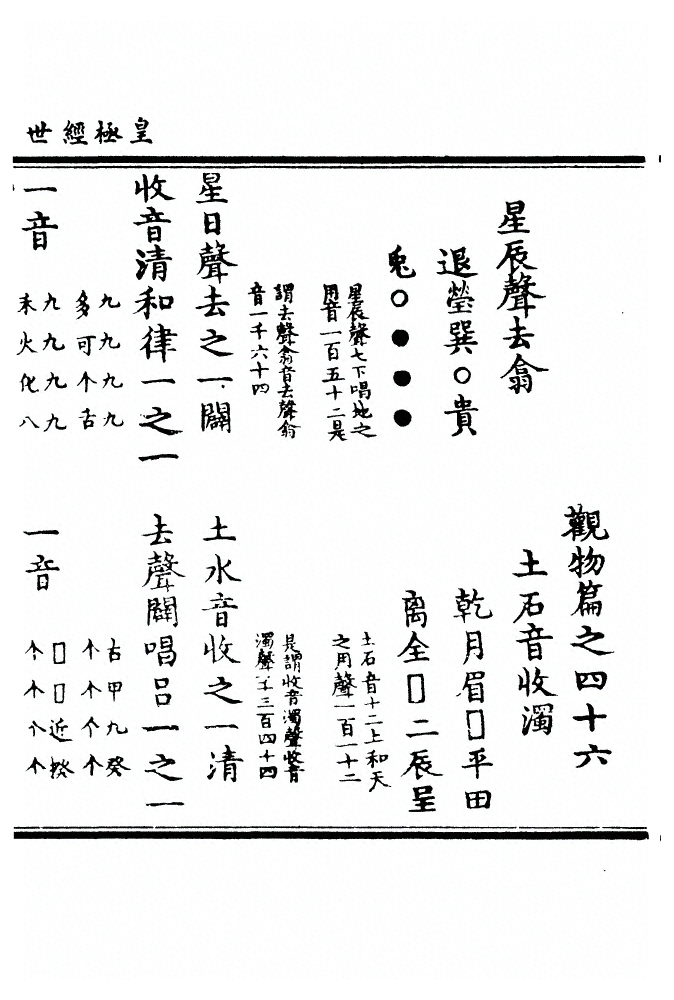 皇極經世
觀物篇之四十六
星辰聲去翕
土石音收濁
退瑩巽○貴
乾月眉□平田
兎○●●●
离全□二辰呈
星辰聲七下唱地之
用音一百五十二是
謂去聲翕音去聲翕
音一千六十四
土石音十二上和天
之用聲一百一十二
是謂收音濁聲收音
濁聲一千三百四十四
星日聲去之一闢
土水音收之一清
收音清和律一之一
去聲闢唱呂一之一
一音
九九九九
多可个舌
九九九九
禾火化八
一音
古甲九癸
个个个个
□□近揆
个个个个